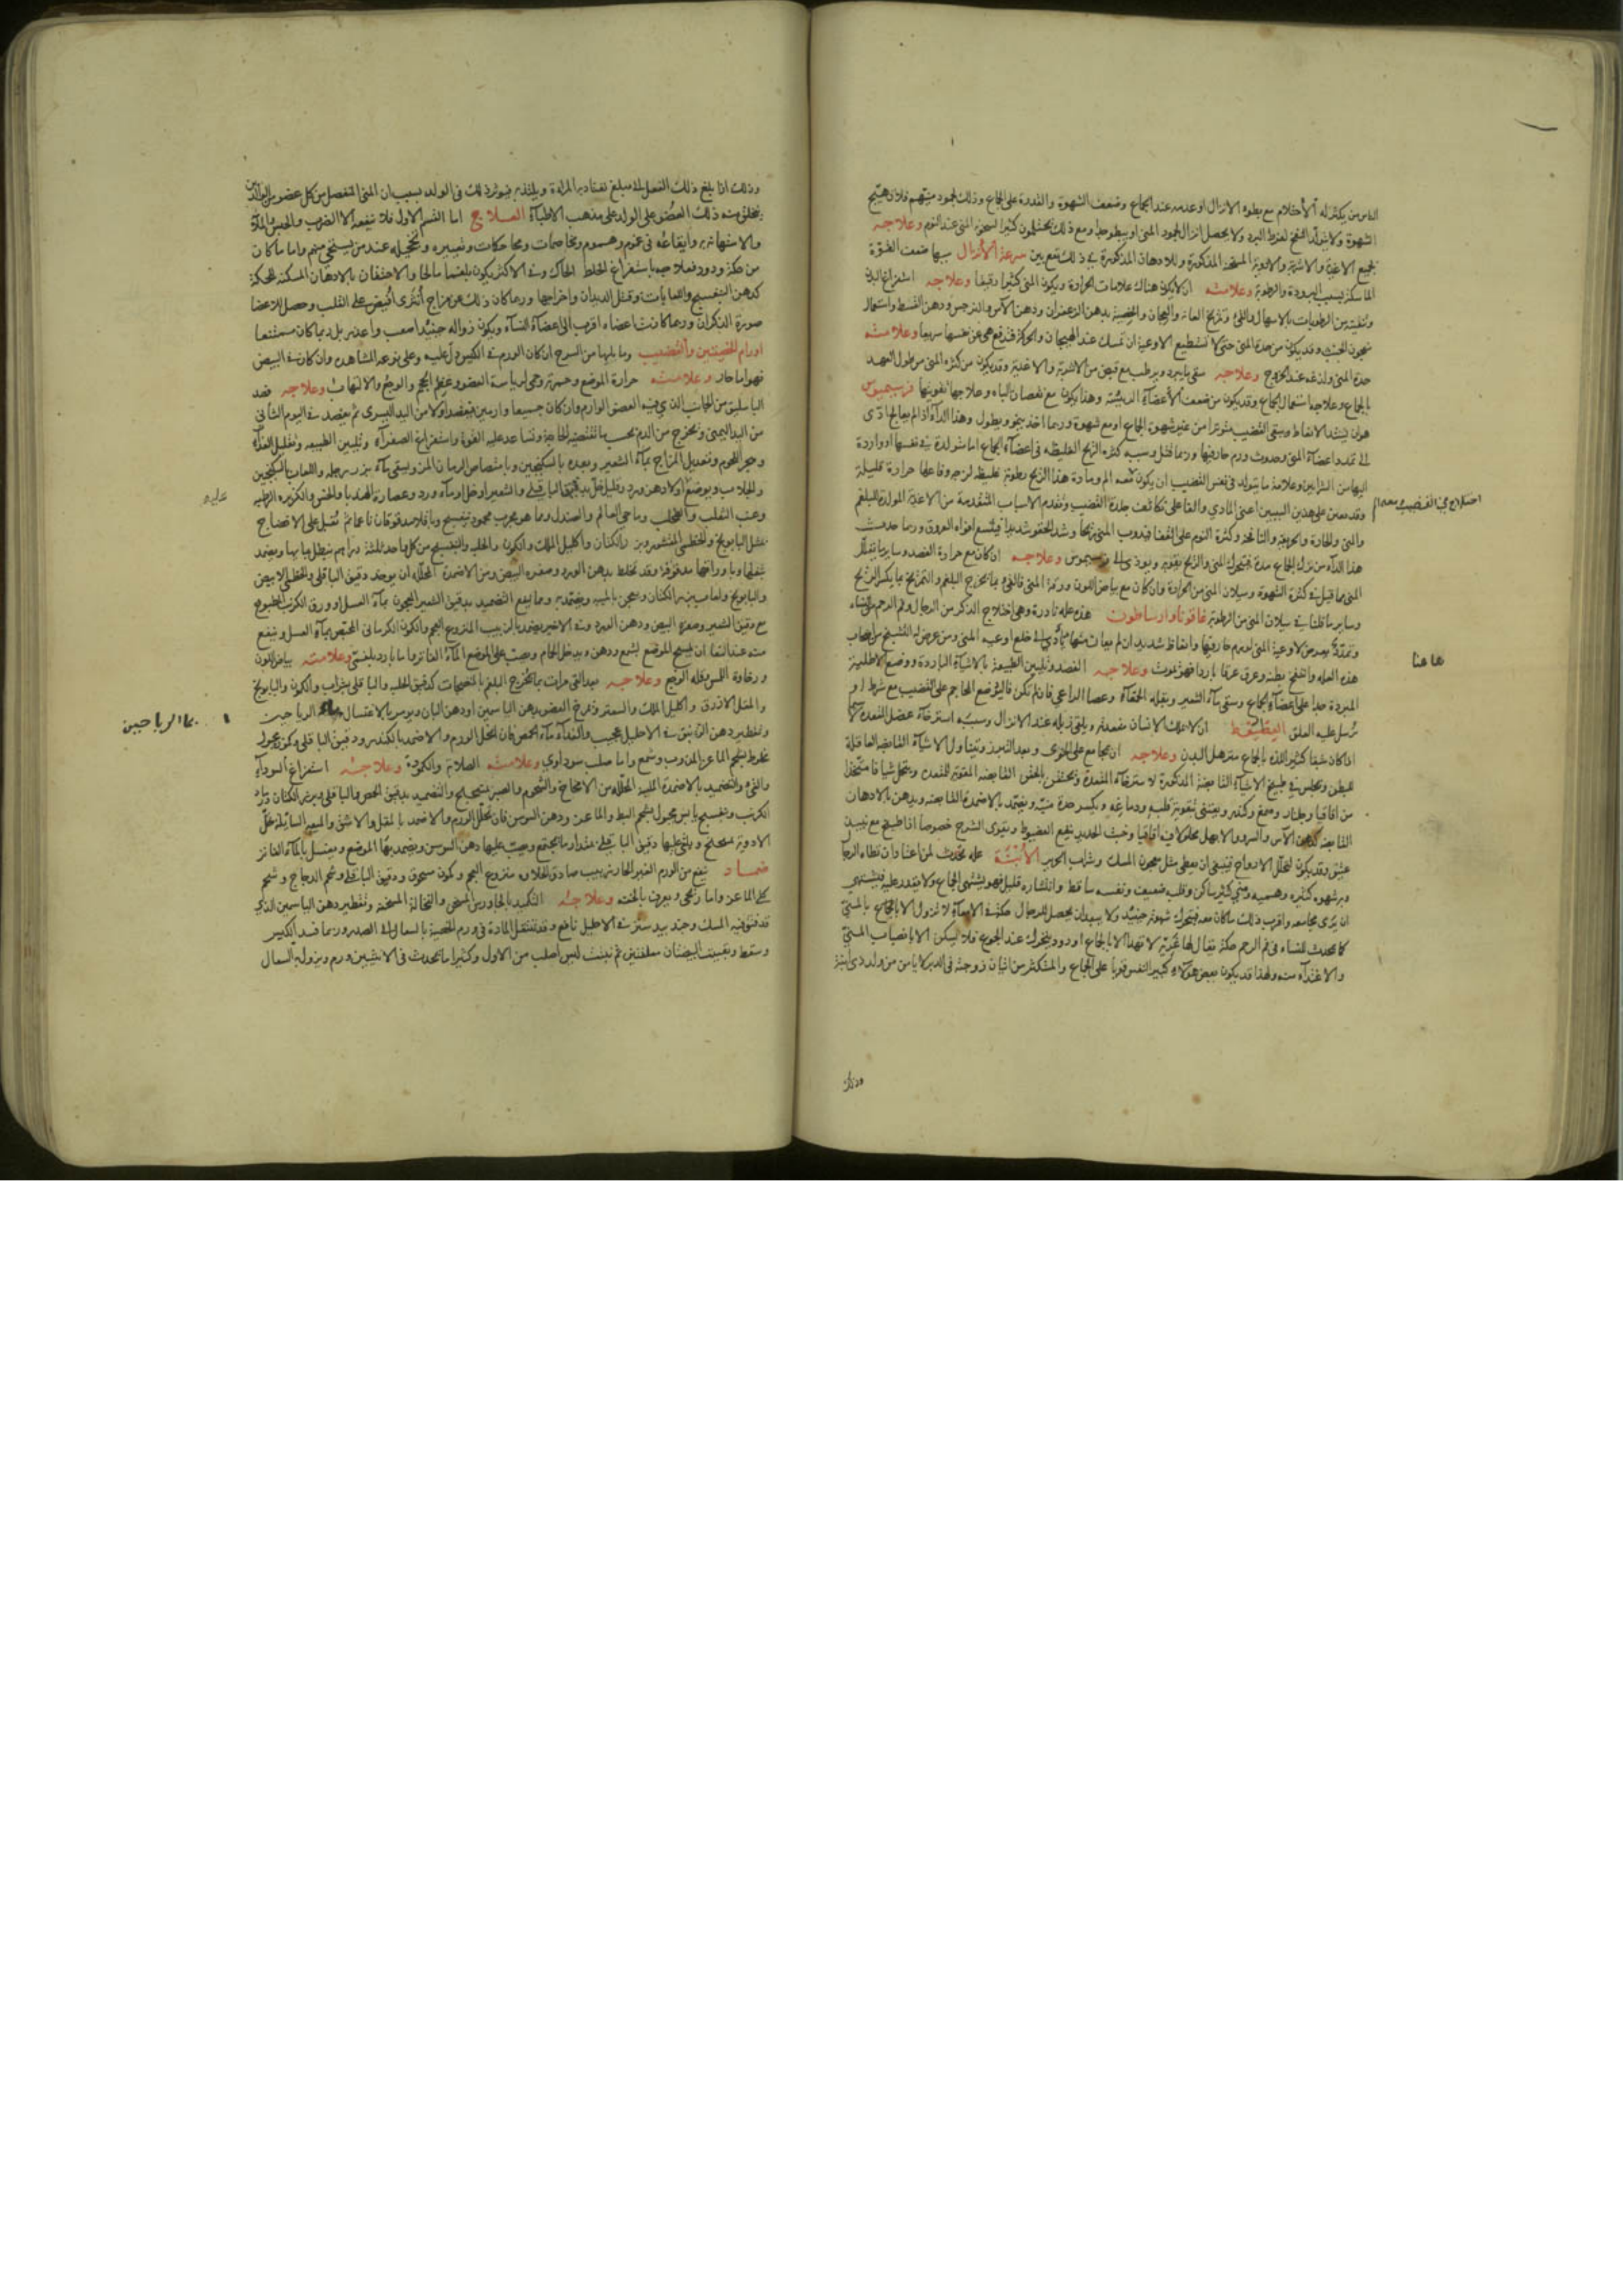 الناس من يكثر له الأحتلام مع بطوء الانزال او عدمه عند الجماع وضعف الشهوة والقدرة على الجماع وذلك لجمود منيهم فلا يهيج
الشهوة ولا يتولد النفخ لفرط البرد ولا يحصل انزال لجمود المنى او ببطوء جدا ومع ذلك يحتلمون كثيرا لسخونة المنى عند النوم وعلاجه
بجميع الاغذية والاشربة والادوية المسخنة المذكورة وللادهان المذكورة في ذلك نفع بين سرعة الأنزال سببها ضعف القوة
الماسكة بسبب البرودة والرطوبة وعلامته ان لا يكون هناك علامات الحرارة ويكون المنى كثيرا رقيقا وعلاجه استفراغ البدن
وتنقيته من الرطوبات بالاسهال والقئ وتمريخ العانة والخصية بدهن الزعفران ودهن الآس والنرجس ودهن القسط واستعمال
معجون الخبث وقد يكون من حدة المنى حتى لا تستطيع الاوعية ان تمسك عند الهيجان والحركة فتدفع عن نفسها سريعا وعلامته
حدة المنى ولذعه عند الخروج وعلاجه سقى ما يبرد ويرطب مع قبض من الاشربة والاغذية وقد يكون من كثرة المنى من طول العهد
بالجماع وعلاجه استعمال الجماع وقد يكون من ضعف الأعضاء الرئيسة وهذا يكون مع نقصان الباه وعلاجها تقويتها فرسيميوس
هو ان يشتد الانعاظ ويبقى القضيب متوترا من غير شهوة الجماع او مع شهوة وربما اخذ ينمو ويطول وهذا الداء اذا لم يعالج ادى
الى تمدد اعضاء المنى وحدوث ورم حار فيها وربما قتل وسببه كثرة الريح الغليظة في اعضاء الجماع اما متولدة في نفسها او واردة
اليها من الشرايين وعلامة ما يتولد في نفس القضيب ان يكون معه الم ومادة هذا الريح رطوبة غليظة لزجة وفاعلها حرارة قليلة
وقد يعين على هذين السببين اعنى المادي والفاعلى تكاثف جلدة القضيب وتقدم الاسباب المتقدمة من الاغذية المولدة للبلغم
هذا الداء من ترك الجماع مدة فيتحرك المنى والريح بقوة ويؤدى الى فرسيميوس وعلاجه ان كان مع حرارة الفصد وساير ما يقلل
المنى مما قيل في كثرة الشهوة وسيلان المنى من الحرارة وان كان مع بياض اللون ورقة المنى فالقئ بما يخرج البلغم والتمريخ بما يكسر الريح
وساير ما قلنا في سيلان المنى من الرطوبة غافوناوارساطون هذه علة نادرة وهى اختلاج الذكر من الرجال وفم الرحم من النساء
هذه العلة وانتفخ بطنه وعرق عرقا باردا فهو يموت وعلاجه الفصد وتليين الطبيعة بالاشياء الباردة ووضع الاطلية
المبردة جدا على اعضاء الجماع وسقى ماء الشعير وبقلة الحمقاء وعصا الراعي فان لم يكن فاليوضع المحاجم على القضيب مع شرط او
يرسل عليه العلق العظيوط ان لا يملك الانسان مقعدته ويلقى زبله عند الانزال وسببه استرخاء عضل المقعدة
اذا كان شبقا كثير اللذة بالجماع مترهل البدن وعلاجه ان يجامع على الخوى وبعد التبرز ويتناول الاشياء القابضة العاقلة
للبطن ويجلس في طبيخ الاشياء القابضة المذكورة لاسترخاء المقعدة ويحتقن بالحقن القابضة المقوية للمقعدة ويتحمل شيافا متخذا
من اقاقيا وجلنار وصمغ وكندر ويعتنى بتقوية قلبه ودماغه ويكسر حدة منيه ويضمد بالاضمدة القابضة ويدهن بالادهان
القابضة كدهن الآس والسرو والابهل محلولا فيه اقاقيا وخبث الحديد ينفع العضيوط ويقوى الشرج خصوصا اذا طبخ مع نبيذ
عتيق وقد يكون لتحلل الارواح فينبغى ان يعطى مثل معجون المسك وشراب الحرير الأبنة علة تحدث لمن اعتاد ان تطاه الرجال
وبه شهوة كثيرة ومنى كثير ساكن وقلبه ضعيف ونفسه ساقط وانتشاره قليل فهو يشتهى الجماع ولا يقدر عليه فيشتهي
ان يرى مجامعه واقرب ذلك ما كان معه فيتحرك شهوته حينئذ ولا يبعد ان يحصل للرجال حكة في الامعاء لا تزول الا بالجماع بالمنى
كما يحدث للنساء في فم الرحم حكة يقال لها لا تهدا الا بالجماع او دود يتحرك عند الجوع فلا يسكن الا بانصباب المنى
والاغتذاء منه ولهذا قد يكون بعض هؤلاء كبير النفس قويا على الجماع والمستكثر من اتيان زوجته في الدبر لا يامن من ولد ذى ابنة
اختلاج في القضيب
ها هنا
وذلك
وذلك اذا بلغ ذلك الفعل الى مبلغ تعتاد به المراة ويلتذ به فيوثر ذلك في الولد بسبب ان المنى المنفصل من كل عضو من الوالدين
يتخلق منه ذلك العضو على الولد على مذهب الاطباء العلاج اما القسم الاول فلا ينفعه الا الضرب والحبس والذلة
والاستهانة به وايقاعه في غموم وهموم ومخاصمات ومحاكات وتعييره وتخجيله عند من يستحي منهم واما ما كان
من حكة ودود فعلاجه باستفراغ الخلط الحاك وفى الاكثر يكون بلغما مالحا والاحتقان بالادهان المسكنة للحكة
كدهن البنفسج واللعابات وقتل الديدان واخراجها وربما كان ذلك عن مزاج أنثوى افيض على القلب وحصل للاعضا
صورة الذكران وربما كانت اعضاء اقرب الى اعضاء النساء ويكون زواله حينئذ اصعب واعذر بل ربما كان ممتنعا
اورام الخصيتين والقضيب وما يليها من السرج ان كان الورم في الكيس دل عليه وعلى نوعه المشاهدة وان كان في البيض
فهو اما حار وعلامته حرارة الموضع وحمرته وحمى لرياسة العضو وعظم الحجم والوجع والالتهاب وعلاجه فصد
الباسليق من الجانب الذي فيه العضو الوارم وان كان جميعا وارمين فيفصد اولا من اليد اليسرى ثم يفصد في اليوم الثانى
من اليد اليمنى ويخرج من الدم بحسب ما تقتضيه الحاجة وتساعد عليه القوة واستفراغ الصفراء وتليين الطبيعة وتقليل الغذاء
وهجر اللحوم وتعديل المزاج بماء الشعير وبعده بالسكنجبين وبامتصاص الرمان المز ويسقى ماء بزر رجلة واللعاب بالسكنجبين
والجلاب ويوضع اولا دهن ورد وقليل خل بدقيق الباقلى والشعير او خل او ماء ورد وعصارة الهندبا والخس والكزبرة الرطبة
وعنب الثعلب والطحلب وماحي العالم والصندل ومما هو مجرب مجمود بنفسج وباقلا مدقوقان ناعما ثم تقبل على الانضاج
بمثل البابونج والخطمى المقشور وبزر الكتان واكليل الملك والكمون والحلبة والبنفسج من كل واحد ثلثة دراهم ينطل بمايها ويضمد
بثفلها وباوراقها مدقوقة وقد تخلط بدهن الورد وصفرة البيض ومن الاضمدة المحللة ان يوخذ دقيق الباقلى والخطمى الابيض
والبابونج ولعاب بزر الكتان وتعجن بالميبه ويضمد به ومما ينفع التضميد بدقيق الشعير المعجون بماء العسل او ورق الكرنب المطبوخ
مع دقيق الشعير وصفرة البيض ودهن الورد وفى الاخير يضمد بالزبيب المنزوع العجم والكمون الكرمانى المحمص بماء العسل وينفع
منه عند النقا ان يمسح الموضع بشمع ودهن ويدخل الحمام ويصب على الموضع الماء الفاتر واما بارد بلغمى وعلامته بياض اللون
ورخاوة الملمس وقلة الوجع وعلاجه بعد القئ مرات بما يخرج البلغم بالمنضجات كدقيق الحلبة والباقلى بشراب والكمون والبابونج
والمقل الازرق واكليل الملك والسعتر وتمريخ العضو بدهن الياسمين او دهن البان ويومر بالاغتسال بماء الرياحين
وتقطير دهن الزنبق في الاحليل عجيب والغذاء ماء الحمص فان انحل الورم والا ضمد بالكندر ودقيق الباقلى وكمون معجون
مخلوط بشحم الماعز المذوب وشمع واما صلب سوداوى وعلامته الصلابة والكمودة وعلاجه استفراغ السوداء
والقئ والتضميد بالاضمدة الملينة المحللة من الامخاخ والشحوم والصبر والتضميد بدقيق الحمص والباقلى وبزر الكتان ورماد
الكرنب وبنفسج يابس معجون بشحم البط والماعز ودهن السوسن فان تحلل الورم والا ضمد بالمقل والاشق والميعة السائلة على
الادوية تسحق ويلقى عليها دقيق الباقلى بمقدار ما يجتمع ويصب عليها دهن السوسن ويضمد بها الموضع ويغسل بالماء الفاتر
ضماد ينفع من الورم الغير الحار زبيب صادق الحلاوة منزوع العجم وكمون مسحوق ودقيق الباقلى وشحم الدجاج وشحم
كلى الماعز واما ريحى ويعرف بالخفة وعلاجه التكميد بالجاورس المسخن والنخالة المسخنة وتقطير دهن الياسمين الذي
قد فتق فيه المسك وجندبيدستر في الاحليل نافع وقد تنتقل المادة في ورم الخصية بالسعال الى الصدر وربما فسد الكيس
وسقط وبقيت البيضتان معلقتين ثم نبتت كيس اصلب من الاول وكثيرا ما يحدث في الانثيين ورم ويزول بالسعال
عليه
بماء الرياحين